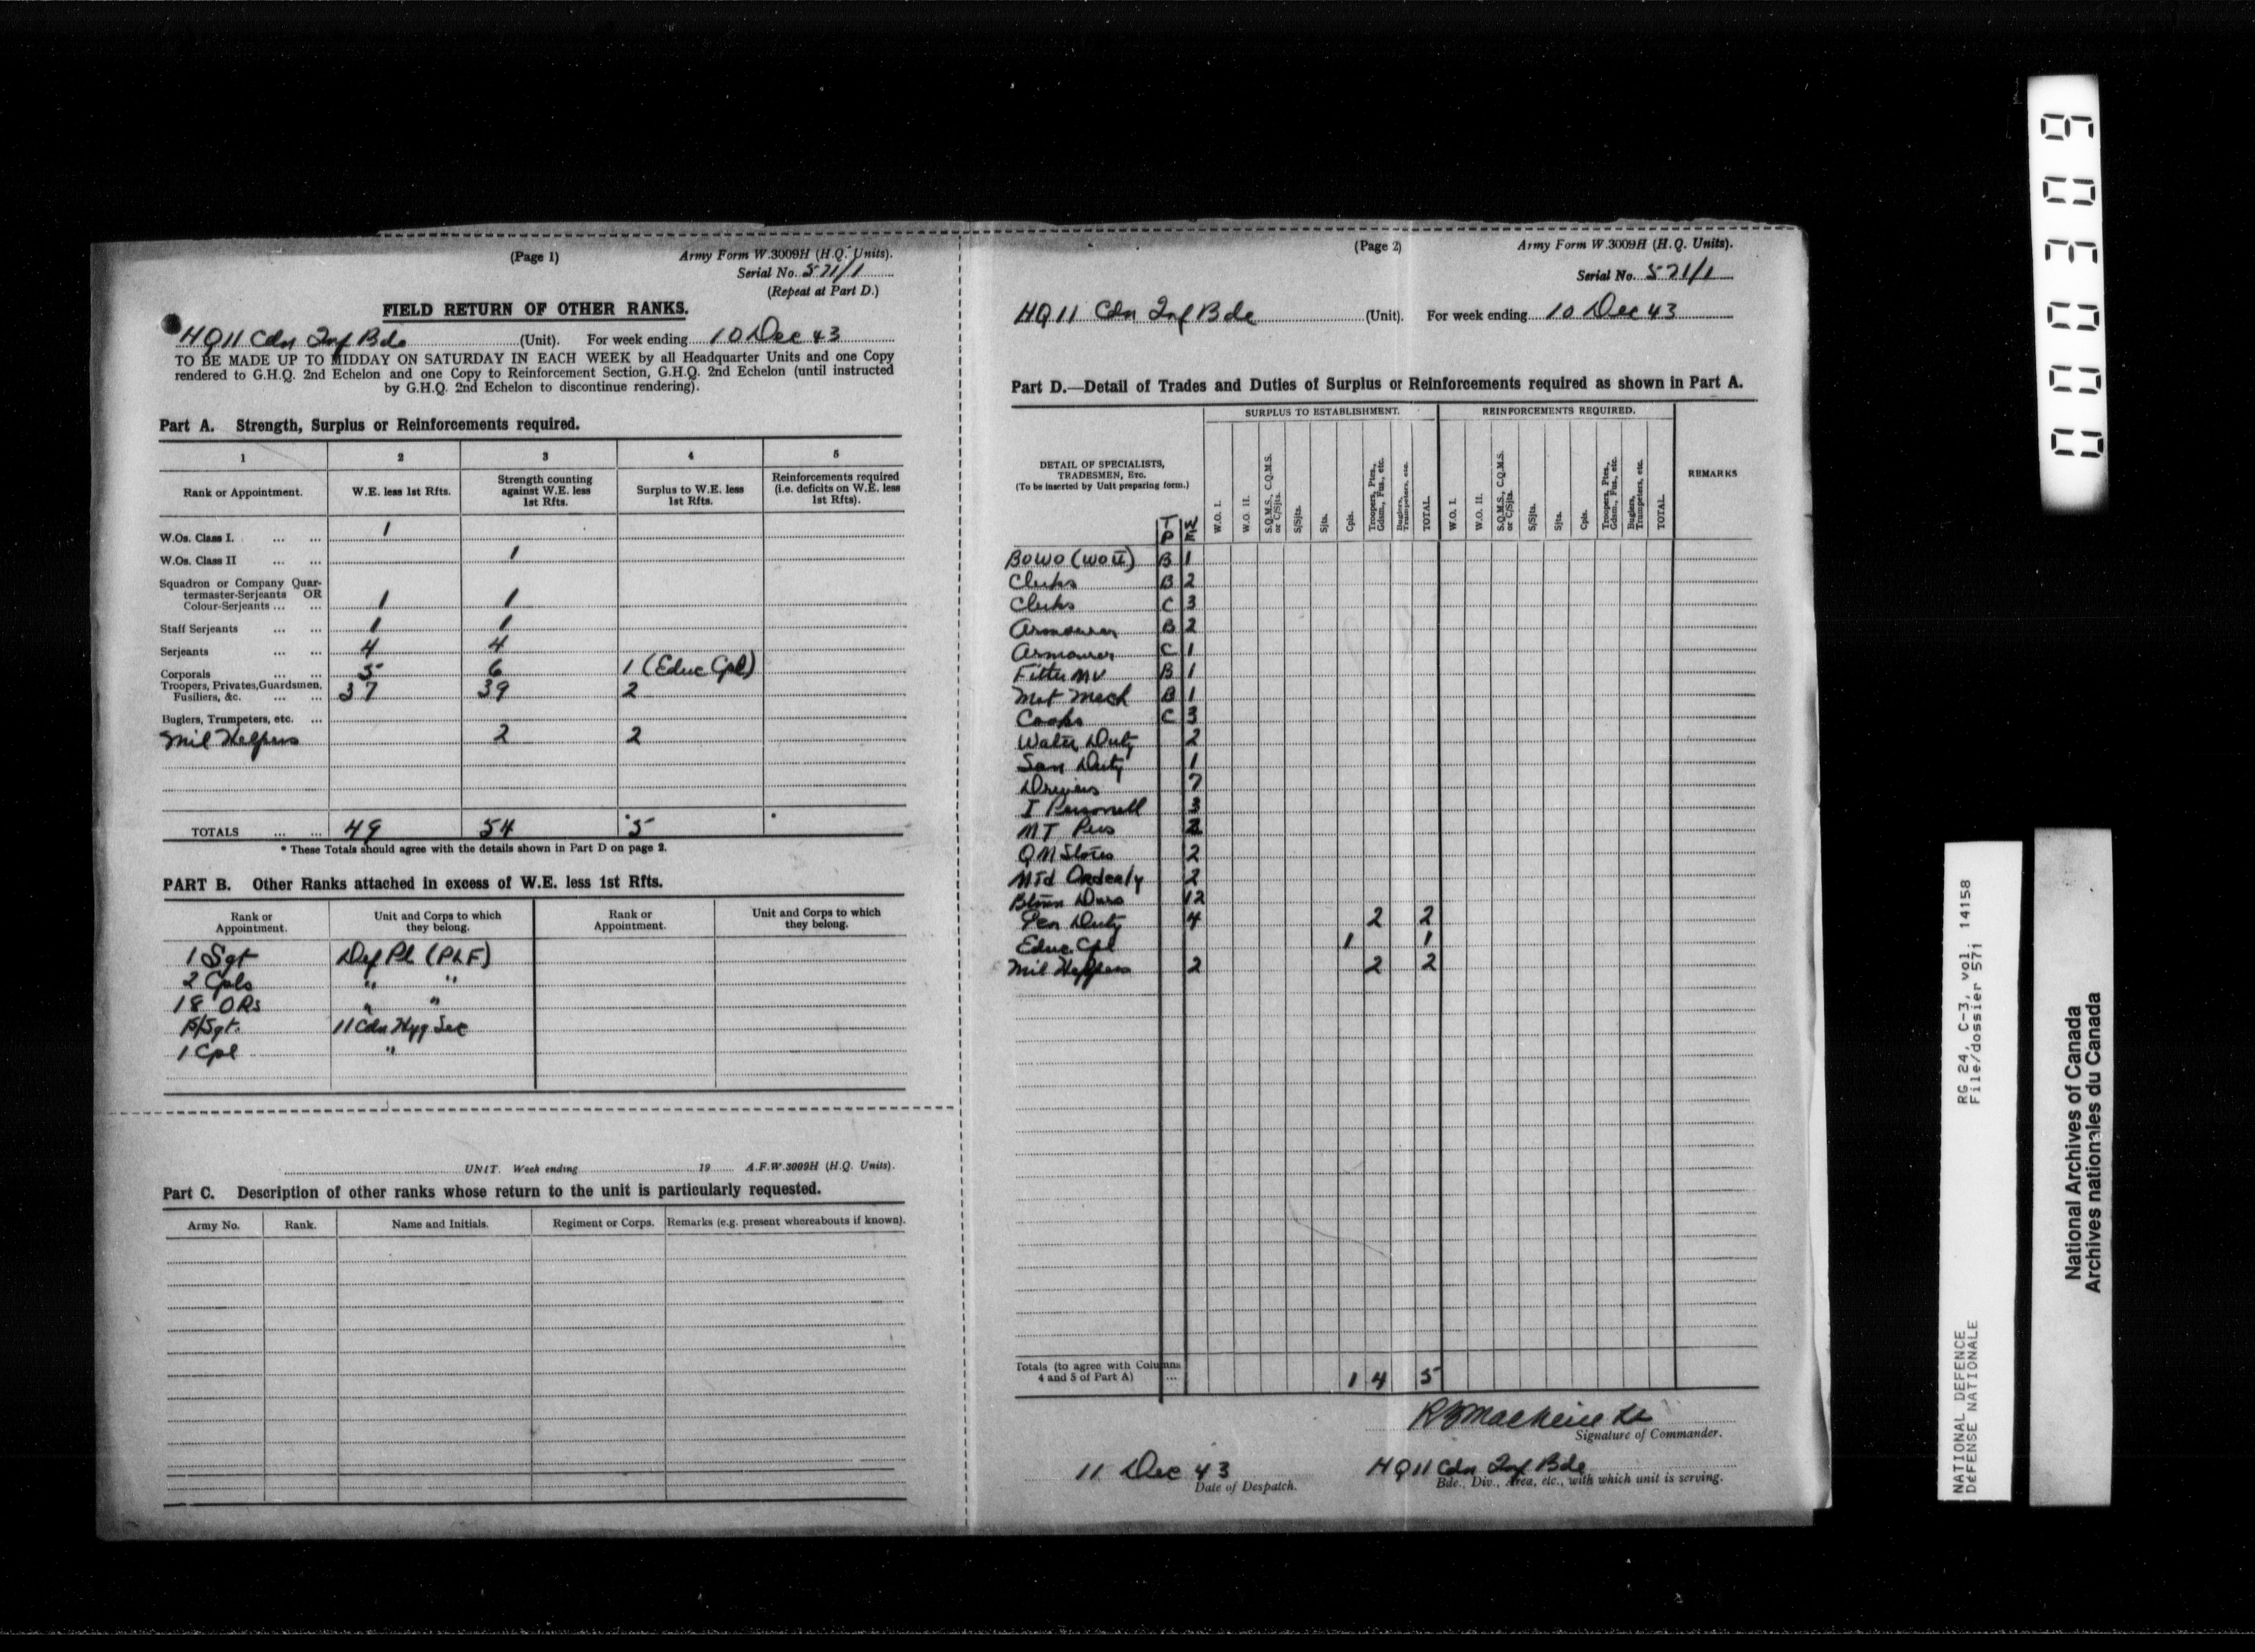 (Page 1)
Army Form W.3009H (H.Q. Units).
Serial No. 571/1
(Repeat at Part D.)
FIELD RETURN OF OTHER RANKS.
HQ 11 Cdn Inf Bde (Unit). For week ending 10 Dec 43
TO BE MADE UP TO MIDDAY ON SATURDAY IN EACH WEEK by all Headquarter Units and one Copy
rendered to G.H.Q. 2nd Echelon and one Copy to Reinforcement Section, G.H.Q. 2nd Echelon (until instructed
by G.H.Q. 2nd Echelon to discontinue rendering).
Part A. Strength, Surplus or Reinforcements required.
1 2 3 4 5
Rank or Appointment. W.E. less 1st Rfts. Strength counting against W.E. less 1st Rfts. Surplus to W.E. less 1st Rfts. Reinforcements required (i.e. deficits on W.E. less 1st Rfts).
W.Os. Class I. ... ... 1
W.Os. Class II ... ... 1
Squadron or Company Quar-
termaster-Serjeants OR
Colour-Serjeants ... ... 1 1
Staff Serjeants ... ... 1 1
Serjeants ... ... 4 4
Corporals ... ... 5 6 1 (Educ Cpl)
Troopers, Privates, Guardsmen,
Fusiliers, &c. ... ... 37 39 2
Buglers, Trumpeters, etc. ...
Mil Helpers 2 2
TOTALS ... ... 49 54 *5 *
* These Totals should agree with the details shown in Part D on page 2.
PART B. Other Ranks attached in excess of W.E. less 1st Rfts.
Rank or Appointment. Unit and Corps to which they belong. Rank or Appointment. Unit and Corps to which they belong.
1 Sgt Def Pl (PLF)
2 Cpls " "
18 ORs " "
S/Sgt. 11 Cdn Hyg Sec
1 Cpl "
UNIT. Week ending 19 A.F.W.3009H (H.Q. Units).
Part C. Description of other ranks whose return to the unit is particularly requested.
Army No. Rank. Name and Initials. Regiment or Corps. Remarks (e.g. present whereabouts if known).
(Page 2)
Army Form W.3009H (H.Q. Units).
Serial No. 571/1
HQ 11 Cdn Inf Bde (Unit). For week ending 10 Dec 43
Part D.—Detail of Trades and Duties of Surplus or Reinforcements required as shown in Part A.
DETAIL OF SPECIALISTS, TRADESMEN, Etc.
(To be inserted by Unit preparing form.)
TP WE
SURPLUS TO ESTABLISHMENT. REINFORCEMENTS REQUIRED. REMARKS
W.O. I. W.O. II. S.Q.M.S., C.Q.M.S. or C/Sjts. S/Sjts. Sjts. Cpls. Troopers, Ptes., Gdsm., Fus., etc. Buglers, Trumpeters, etc. TOTAL.
W.O. I. W.O. II. S.Q.M.S., C.Q.M.S. or C/Sjts. S/Sjts. Sjts. Cpls. Troopers, Ptes., Gdsm., Fus., etc. Buglers, Trumpeters, etc. TOTAL.
BOWO (WO II) B 1
Clerks B 2
Clerks C 3
Armourer B 2
Armourer C 1
Fitter MV B 1
Mot Mech B 1
Cooks C 3
Water Duty 2
San Duty 1
Drivers 7
I Personell 3
MT Pers 2
QM Stores 2
Md Orderly 2
Btmn Dvrs 12
Gen Duty 4 2 2
Educ Cpl 1 1
Mil Helpers 2 2 2
Totals (to agree with Columns
4 and 5 of Part A) ... 1 4 5
Signature of Commander.
11 Dec 43
Date of Despatch.
HQ 11 Cdn Inf Bde
Bde., Div., Area, etc., with which unit is serving.
000309
RG 24, C-3, vol. 14158
File/dossier 571
NATIONAL DEFENCE
DéFENSE NATIONALE
National Archives of Canada
Archives nationales du Canada